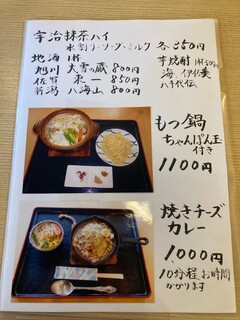 宇治抹茶ハイ
水割り・ソーダ・ミルク 各350円
地酒 1杯
旭川 大雪の蔵 800円
佐賀 東一 850円
新潟 八海山 800円
芋焼酎 1杯500円
海、伊佐美
八千代伝
もつ鍋
ちゃんぽん玉
付き
1100円
焼きチーズ
カレー
1,000円
10分程、お時間
かかります